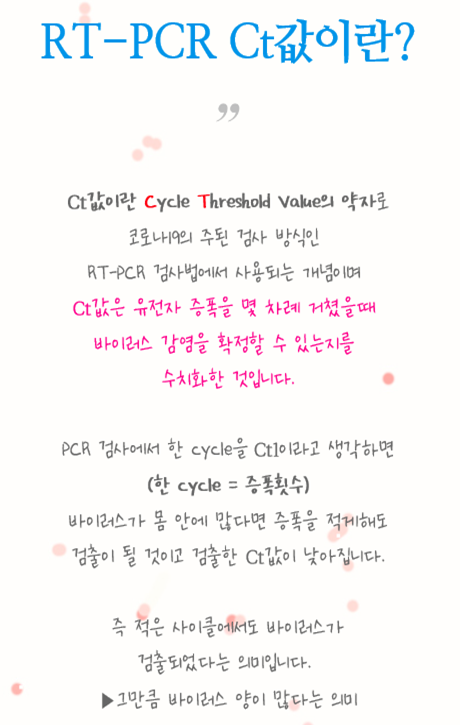 RT-PCR Ct값이란?
”
Ct값이란 Cycle Threshold Value의 약자로
코로나19의 주된 검사 방식인
RT-PCR 검사법에서 사용되는 개념이며
Ct값은 유전자 증폭을 몇 차례 거쳤을때
바이러스 감염을 확정할 수 있는지를
수치화한 것입니다.
PCR 검사에서 한 cycle을 Ct1이라고 생각하면
(한 cycle = 증폭횟수)
바이러스가 몸 안에 많다면 증폭을 적게해도
검출이 될 것이고 검출한 Ct값이 낮아집니다.
즉 적은 사이클에서도 바이러스가
검출되었다는 의미입니다.
▶그만큼 바이러스 양이 많다는 의미